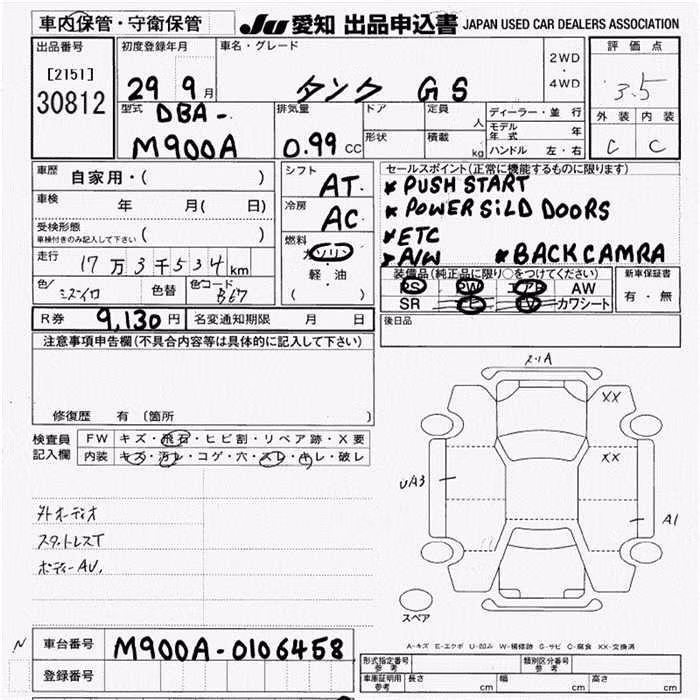 車内保管・守衛保管
JU 愛知 出品申込書 JAPAN USED CAR DEALERS ASSOCIATION
出品番号
[2151]
30812
初度登録年月
29 9月
車名・グレード
タンク GS
2WD
・
4WD
評価点
3.5
外装 内装
C C
型式
DBA-
M900A
排気量
0.99 CC
ドア
定員
人
形状
積載
kg
ディーラー・並行
モデル年式 年
ハンドル 左・右
車歴
自家用・( )
車検
年 月( 日)
受検形態
車検付きのみ記入して下さい ( )
走行
17万3千534km
色/
ミズイロ
色替
色コード
B67
シフト
AT.
冷房
AC
燃料
ガソリン
・
軽・油
( )
セールスポイント(正常に機能するものに限ります)
* PUSH START
* POWER SiLD DOORS
* ETC
* A/W * BACK CAMRA
装備品(純正品に限り○をつけてください)
PS PW エアB AW
SR ナビ TV カワシート
新車保証書
有・無
R券 9,130円 名変通知期限 月 日
後日品
注意事項申告欄(不具合内容等は具体的に記入して下さい)
修復歴 有 〔箇所 〕
検査員
記入欄
FW キズ・飛石・ヒビ割・リペア跡・X要
内装 キズ・汚レ・コゲ・穴・スレ・キレ・破レ
外オーディオ
スタットレスT
ボディーAU,
XX
XX
UA3
A1
スペア
A-キズ E-エクボ U-凹み W-補修跡 S-サビ C-腐食 XX-交換済
N
車台番号
M900A-0106458
登録番号
形式指定番号
参考
類別区分番号
参考
車庫証明用
参考
長さ cm
幅 cm
高さ cm